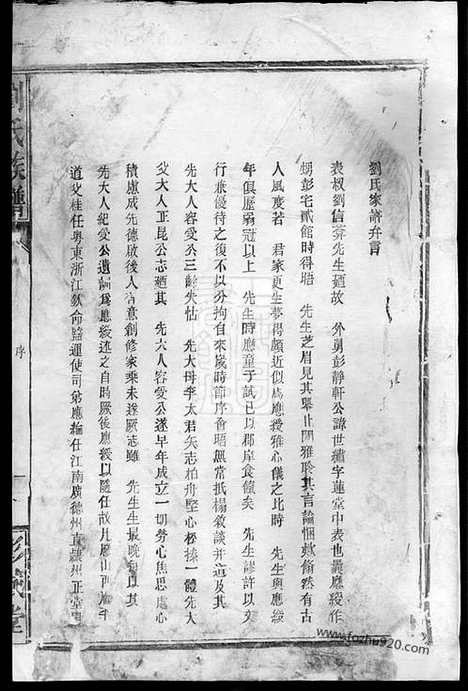 劉氏家譜弁言
表叔劉信莽先生廼故 外舅彭靜軒公諱世繡字蓮堂中表也義應綬作
甥彭宅貳館時得瞻 先生芝眉見其舉止閑雅聆其言論愷惻翛然有古
人風度若 君家更生夢得顏近似焉應授雅心儀之比時 先生與應綬
年俱歷弱冠以上 先生時應童子試已以郡庠食餼矣 先生謬許以文
行兼優待之復不以外拘自來歲時節序會晤無常抵掬敘談并這及其
先大人容受公三齡失怙 先大母李太君矢志柏舟堅心松操一體先大
父大人正昆公志廼其 先大人容受公遂早年成立一切勞心焦思處心
積慮成先德啟後人有意創修家乘未遂厥志雖 先生生最晚
先大人紀受公遺 為應綬述之自時厥後應綬以隨任故凡歷山
道父桂任粵東浙江欽命鹽運使司弟應綸任江南廣德州直隸州正堂
劉氏族譜
序
彭城堂
www.fozhu920.com